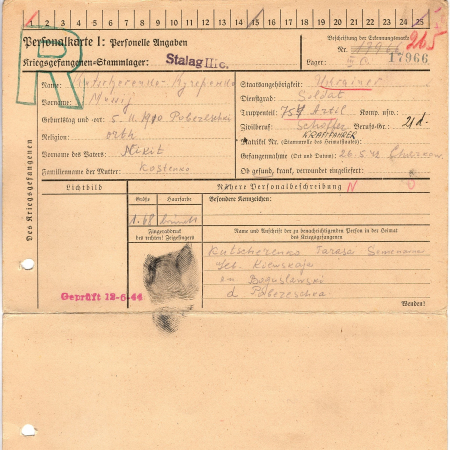 1 2 3 4 5 6 7 8 9 10 11 12 13 14 15 16 17 18 19 20 21 22 23 24 25
Personalkarte I: Personelle Angaben
Kriegsgefangenen-Stammlager: Stalag IIIc.
Beschriftung der Erkennungsmarke
Nr. 17966
Lager:
265
17966
R
Des Kriegsgefangenen
Name:
Vorname:
Geburtstag und -ort: 5. II. 1910
Religion: orth
Vorname des Vaters: Nikit
Familienname der Mutter: Kostenko
Staatsangehörigkeit: Ukrainer
Dienstgrad: Soldat
Truppenteil: 757 Artil Komp. usw.:
Zivilberuf: Berufs-Nr.:
KRAFTFAHRER
Matrikel Nr. (Stammrolle des Heimatstaates):
Gefangennahme (Ort und Datum): 26.5.42
Ob gesund, krank, verwundet eingeliefert:
Lichtbild
Nähere Personalbeschreibung
N
Größe
Haarfarbe
Besondere Kennzeichen:
1.68
Fingerabdruck
des rechten! Zeigefingers
Name und Anschrift der zu benachrichtigenden Person in der Heimat
des Kriegsgefangenen
Kutscherenko Tarasa
geb.
Boguslawski
d
Wenden!
Geprüft 12-6-44